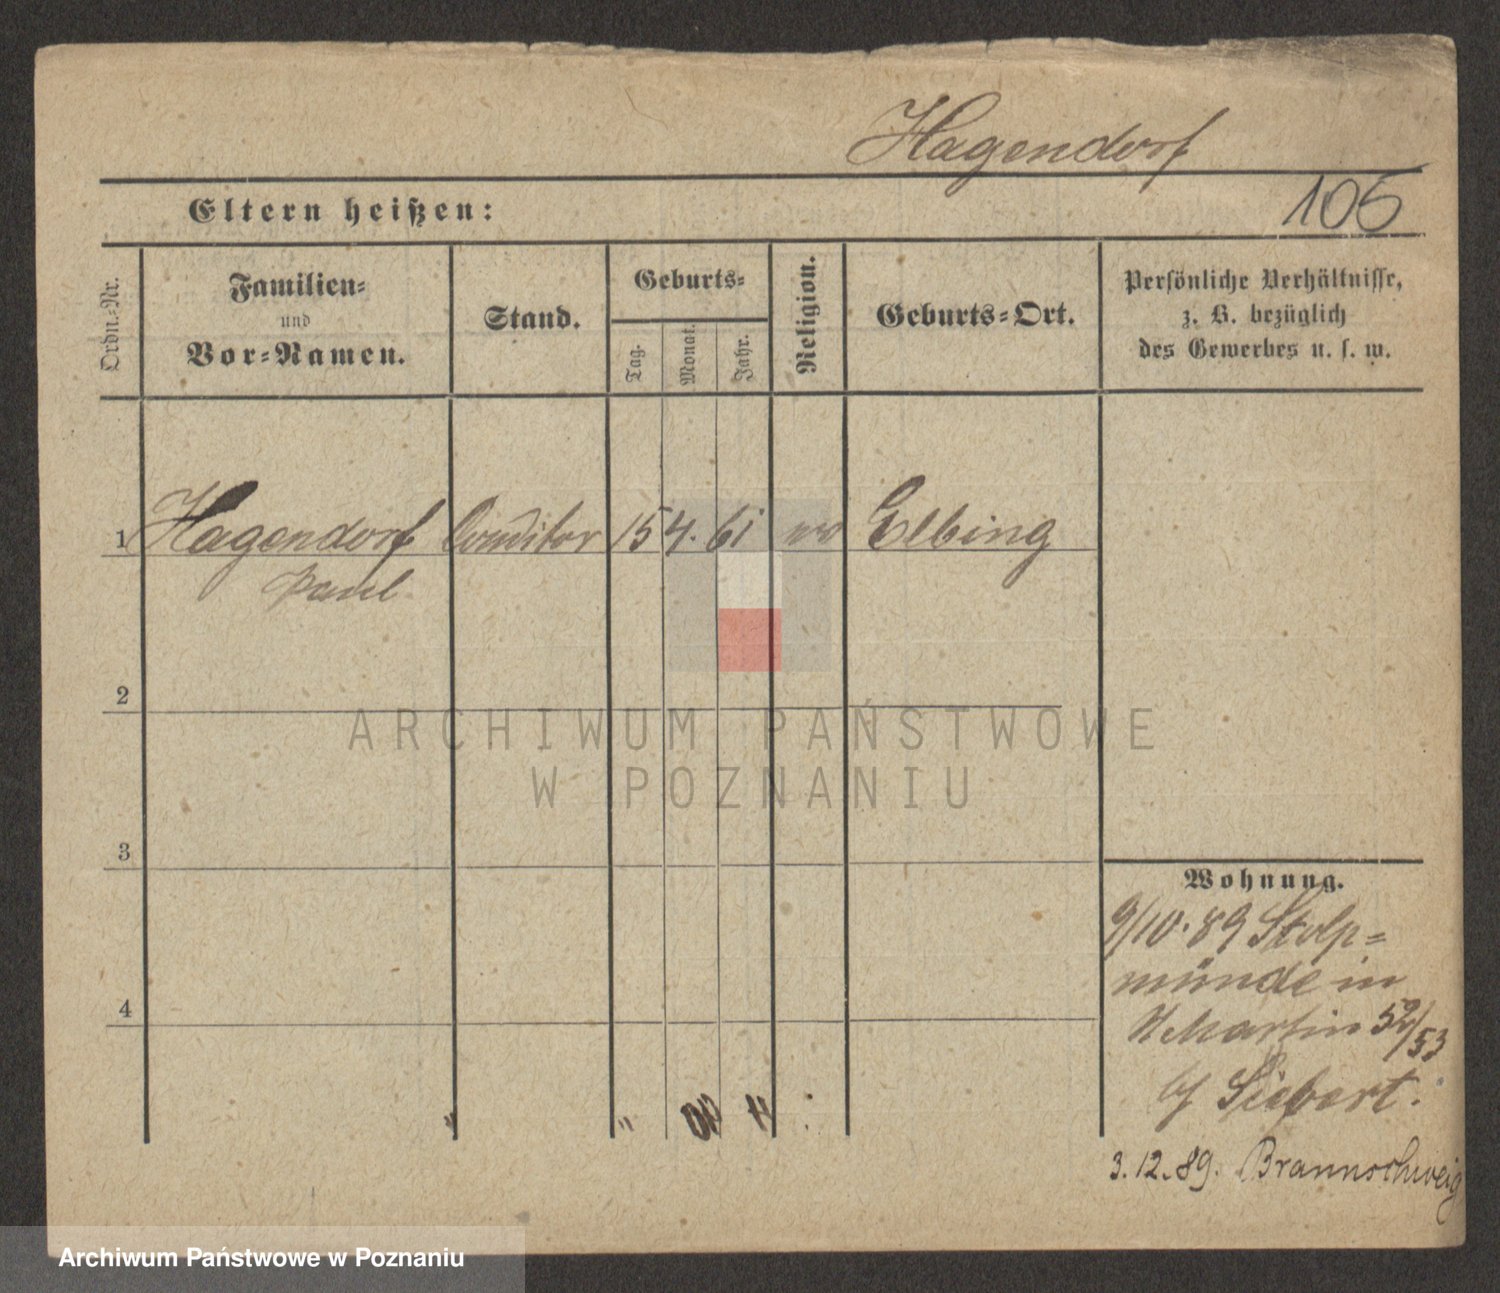 Hagendorf
106
Eltern heißen:
Ordn.-Nr.
Familien-
und
Vor-Namen.
Stand.
Geburts-
Tag.
Monat.
Jahr.
Religion.
Geburts-Ort.
Persönliche Verhältnisse,
z. B. bezüglich
des Gewerbes u. s. w.
1 Hagendorf Conditor 15 4. 61 Elbing
Paul
2
ARCHIWUM PAŃSTWOWE
W POZNANIU
3
Wohnung.
9/10.89 Stolp=
münde in
Martin 52/53
Siebert.
4
3.12.89. Braunschweig
Archiwum Państwowe w Poznaniu